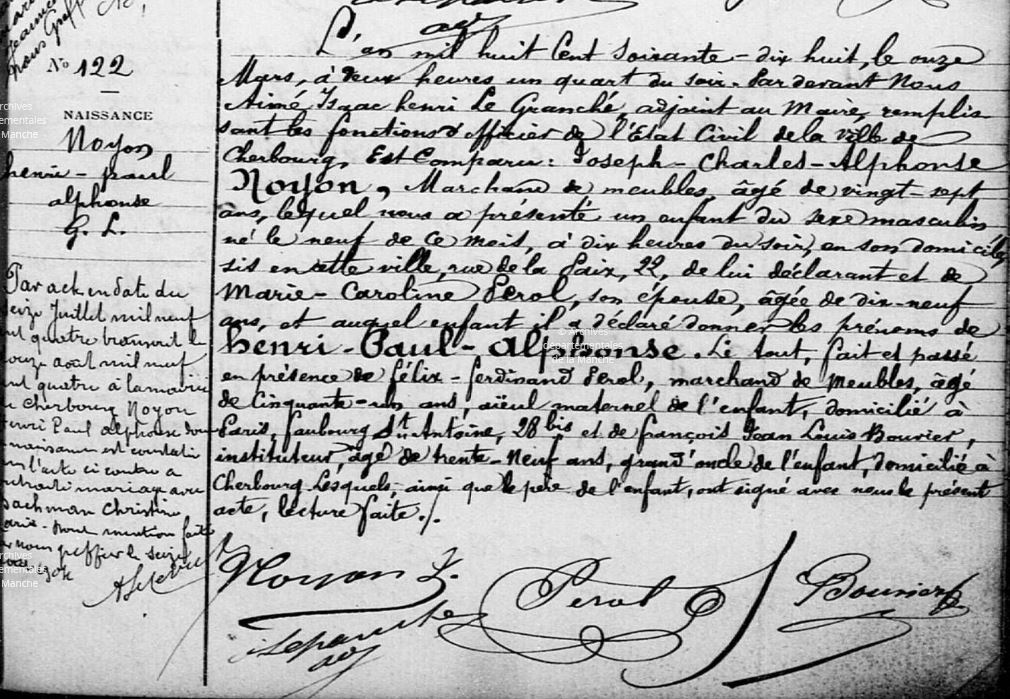 N° 122
NAISSANCE
Noyon
henri - paul
alphonse
G. L.
Par acte en date du
seize Juillet mil neuf
cent quatre
août mil neuf
cent quatre à la mairie
Cherbourg Noyon
henri Paul alphonse dont
naissance est constatée
l'acte ci contre a
contracté mariage avec
Bachman Christine
Marie - Dont mention faite
par nous greffier le seize
L'an mil huit Cent soixante - dix huit, le onze
Mars, à deux heures un quart du soir. Par devant Nous
Aimé, Isaac henri Le Granché, adjoint au Maire, remplis-
sant les fonctions d'officier de l'Etat Civil de la ville de
Cherbourg, Est Comparu : Joseph - Charles - Alphonse
Noyon, Marchand de meubles, âgé de vingt - sept
ans, lequel nous a présenté un enfant du sexe masculin
né le neuf de ce mois, à dix heures du soir, en son domicile,
sis en cette ville, rue de la Paix, 22, de lui déclarant et de
Marie - Caroline Perol, son épouse, âgée de dix-neuf
ans, et auquel enfant il a déclaré donner les prénoms de
henri - Paul - Alphonse. Le tout, fait et passé
en présence de félix - ferdinand Perol, marchand de Meubles, âgé
de Cinquante - un ans, aïeul maternel de l'enfant, domicilié à
Paris, faubourg St Antoine, 28 bis et de françois Jean Louis Bouvier,
instituteur, âgé de trente - Neuf ans, grand'oncle de l'enfant, domicilié à
Cherbourg Lesquels, ainsi que le père de l'enfant, ont signé avec nous le présent
acte, lecture faite ./.
Noyon Perol Bouvier
archives
départementales
de la Manche